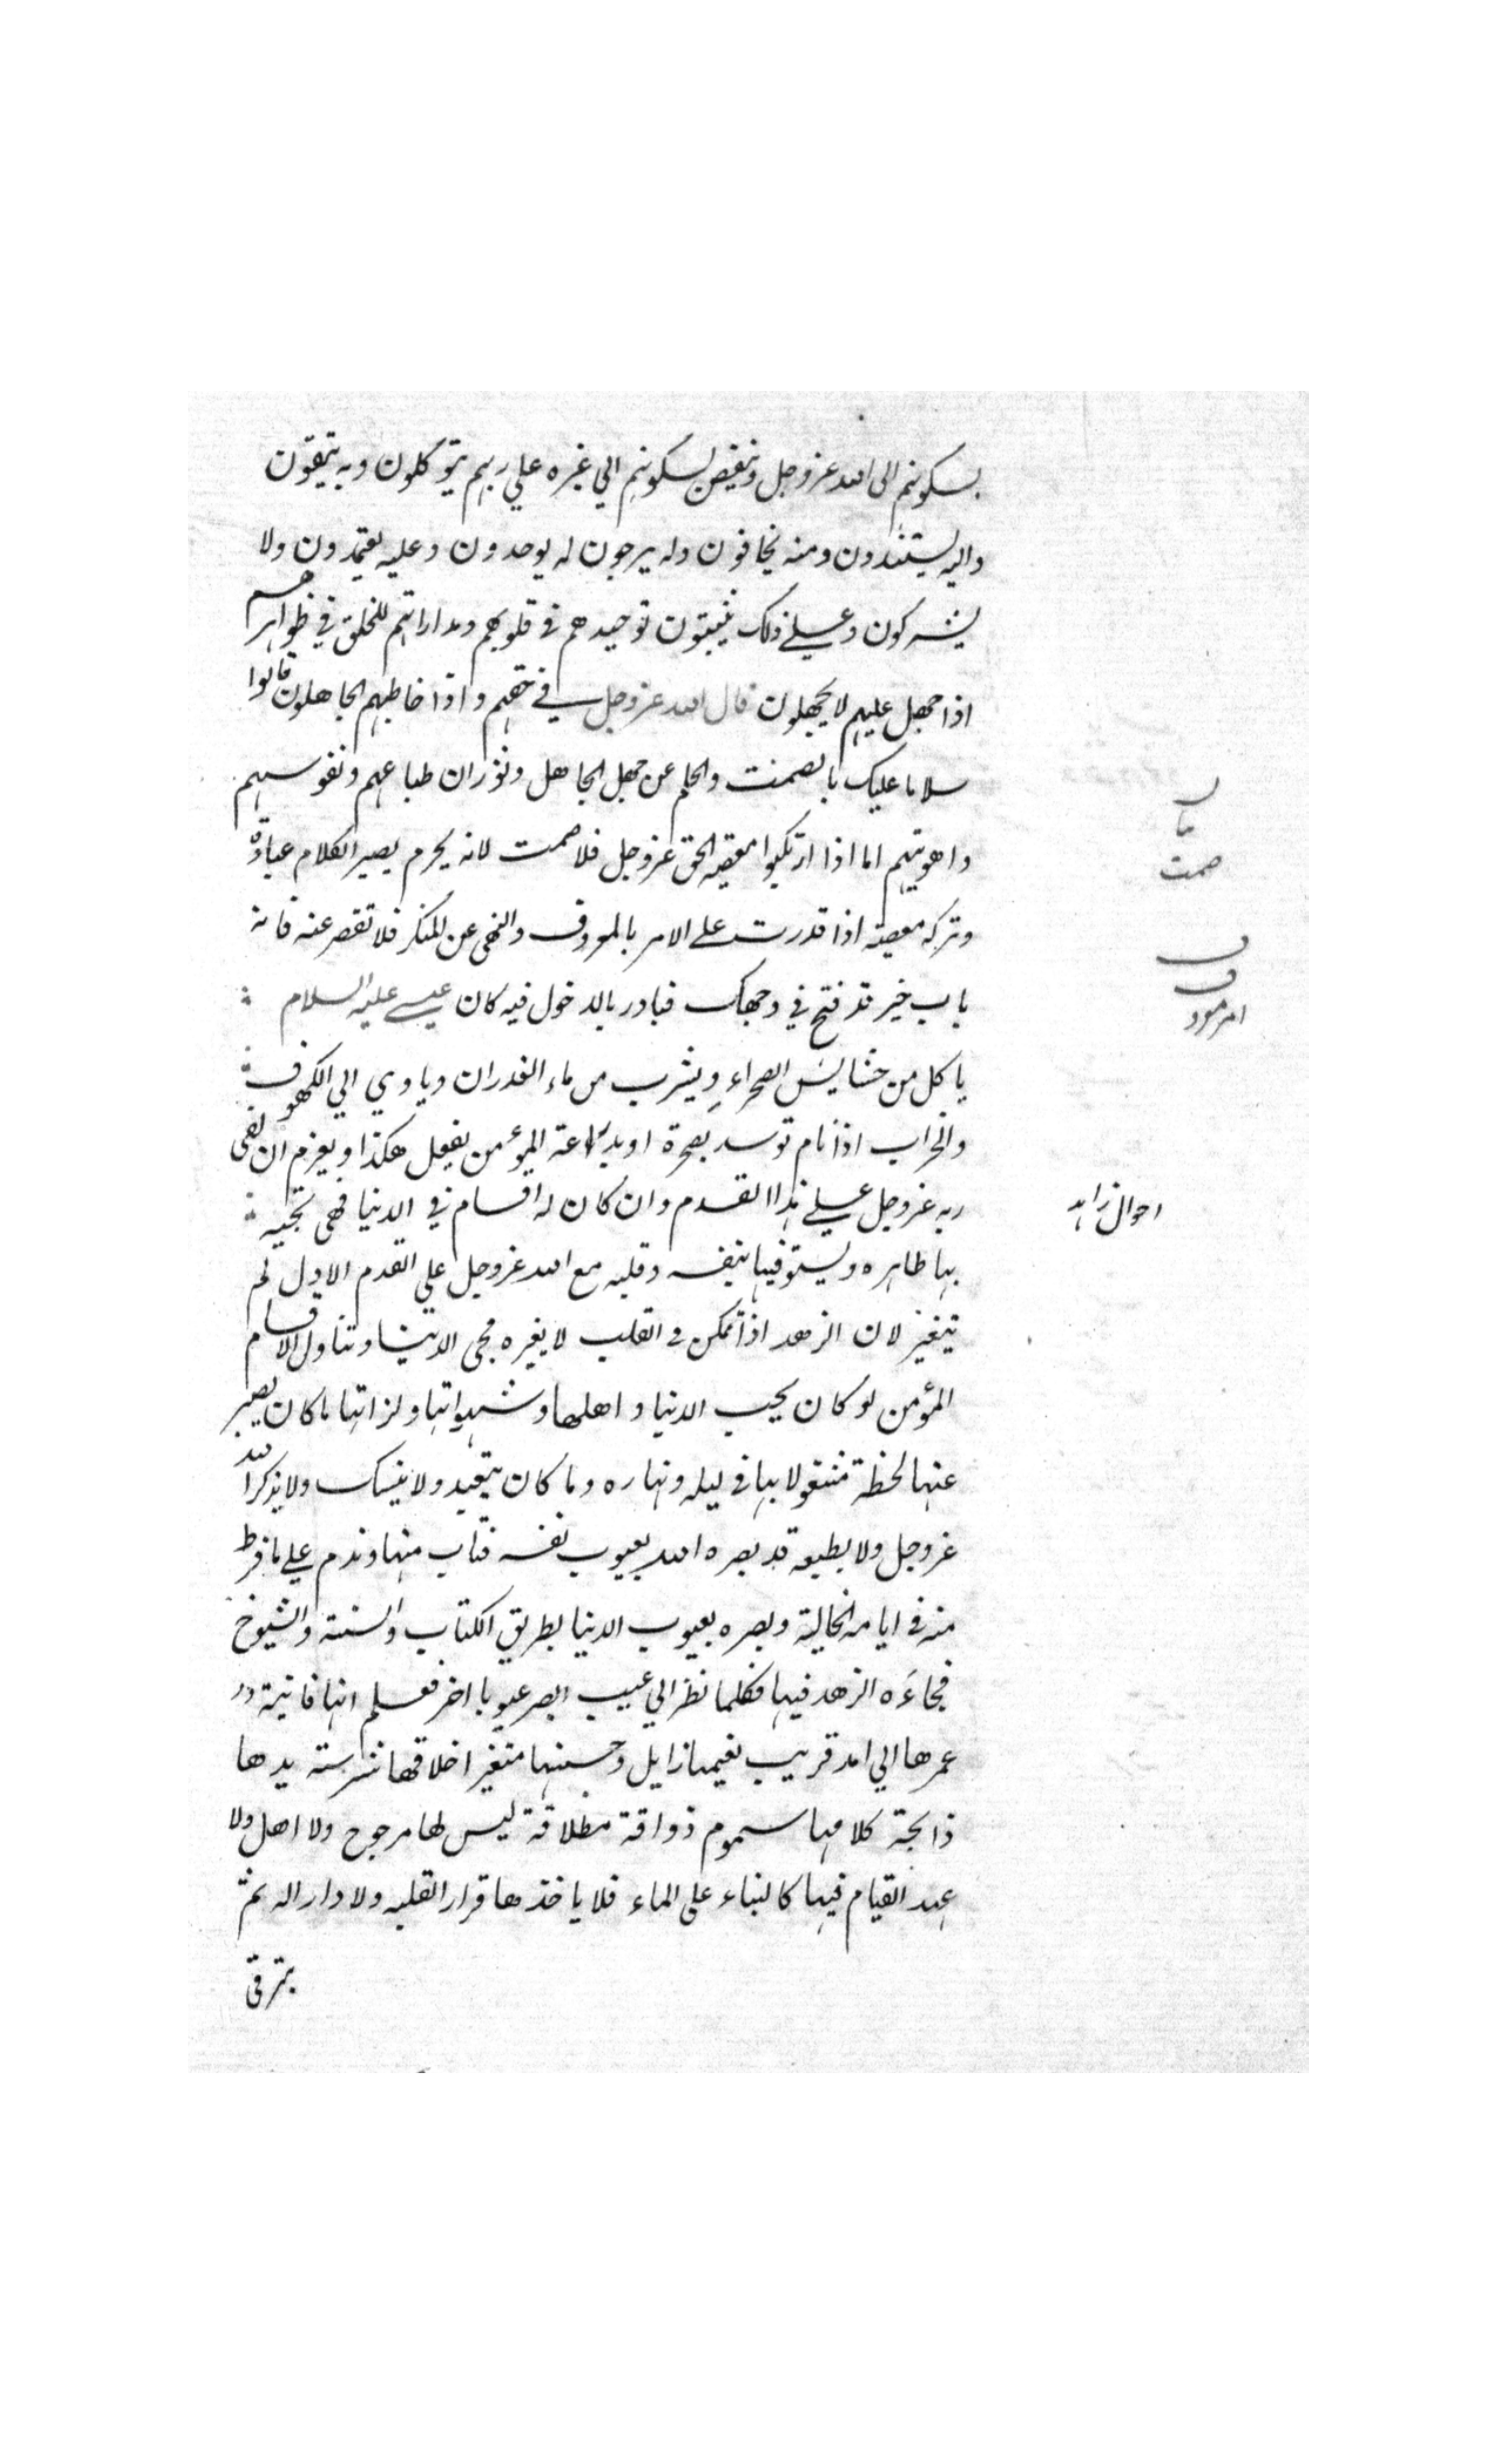 بسكونهم الى الله عزوجل وتنغيص لسكونهم الي غيره علي ربهم يتوكلون وبه يثقون
واليه يستندون ومنه يخافون وله يرجون له يوحدون وعليه يعتمدون ولا
يشركون وعلي ذلك يثبتون توحيدهم في قلوبهم ومداراتهم للخلق في ظواهرهم
اذا جهل عليهم لا يجهلون قال الله عزوجل في حقهم واذا خاطبهم الجاهلون قالوا
سلاما عليك بالصمت والحلم عن جهل الجاهل وثوران طباعهم ونفوسهم
واهويتهم اما اذا ارتكبوا معصية الحق عزوجل فلا صمت لانه يحرم يصير الكلام عبادة
وتركه معصية اذا قدرت على الامر بالمعروف والنهى عن المنكر فلا تقصر عنه فانه
باب خير قد فتح في وجهك فبادر بالدخول فيه كان عيسي عليه السلام
ياكل من حشايش الصحراء ويشرب من ماء الغدران وياوي الي الكهوف
والخراب اذا نام توسد بصخرة او بذراعه المؤمن يفعل هكذا ويعزم ان يلقى
ربه عزوجل علي هذا القدم وان كان له اقسام في الدنيا فهى تجيه
بها ظاهره ويستوفيها بنفسه وقلبه مع الله عزوجل على القدم الاول لم
يتغير لان الزهد اذا تمكن في القلب لا يغيره مجى الدنيا وتناول الاقسام
المؤمن لو كان يحب الدنيا واهلها وشهواتها ولذاتها ما كان يصبر
عنها لحظة مشغولا بها في ليله ونهاره وما كان يتعبد ولا يتنسك ولا يذكر الله
عزوجل ولا يطيعه قد بصره الله بعيوب نفسه فتاب منها وندم علي ما فرط
منه في ايامه الخالية وبصره بعيوب الدنيا بطريق الكتاب والسنة والشيوخ
فجاءه الزهد فيها فكلما نظر الي عيب ابصر عيوبا اخر فعلم انها فانية
عمرها الي امد قريب نعيمها زايل وحسنها متغير اخلاقها شرسة يدها
ذابحة كلامها سموم ذواقة مطلاقة ليس لها مرجوح ولا اصل ولا
عهد القيام فيها كالبناء على الماء فلا ياخذها قرارا لقلبه ولا دارا له ثم
يترقى
باب
صمت
امر معروف
احوال زاهد